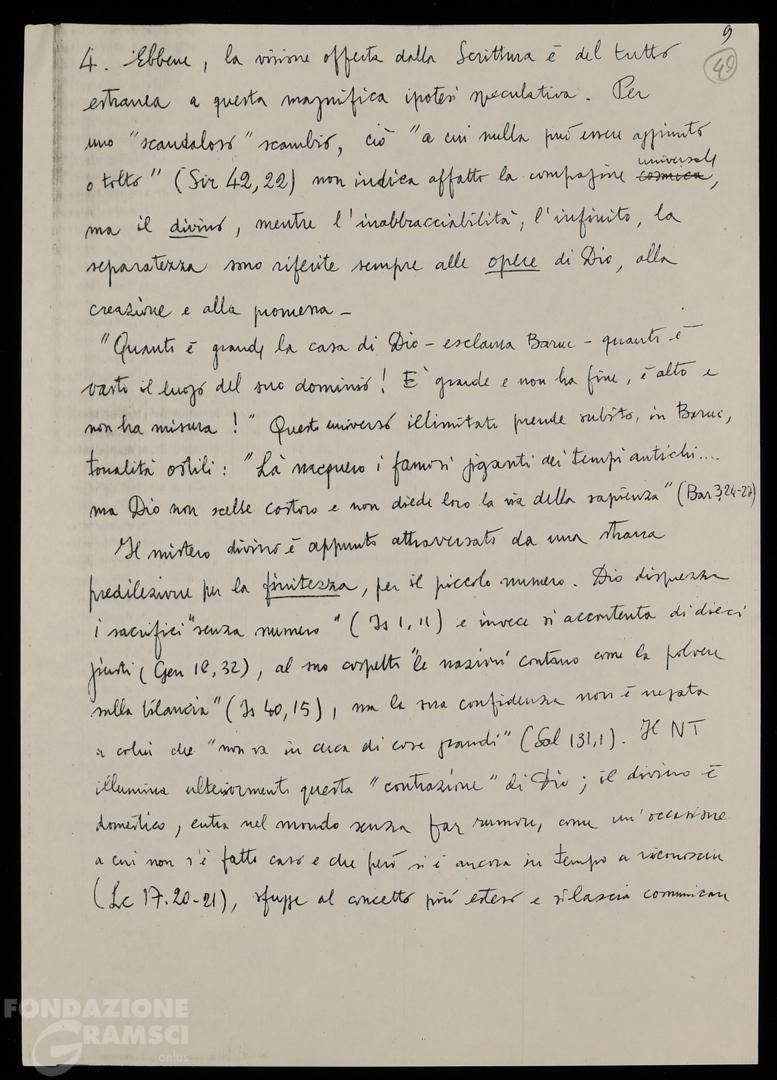 9
49
4. Ebbene, la visione offerta dalla Scrittura è del tutto
estranea a questa magnifica ipotesi speculativa. Per
uno "scandaloso" scambio, ciò "a cui nulla può essere aggiunto
universale
o tolto" (Sir 42,22) non indica affatto la compagine cosmica,
ma il divino, mentre l'inabbracciabilità, l'infinito, la
separatezza sono riferite sempre alle opere di Dio, alla
creazione e alla promessa –
"Quanto è grande la casa di Dio – esclama Baruc – quanto è
vasto il luogo del suo dominio! È grande e non ha fine, è alto e
non ha misura!" Questo universo illimitato prende subito, in Baruc,
tonalità ostili: "Là nacquero i famosi giganti dei tempi antichi....
ma Dio non scelse costoro e non diede loro la via della sapienza" (Bar 3,24-27)
Il mistero divino è appunto attraversato da una strana
predilezione per la finitezza, per il piccolo numero. Dio disprezza
i sacrifici "senza numero" (Is 1,11) e invece si accontenta di dieci
giusti (Gen 18,32), al suo cospetto "le nazioni contano come la polvere
sulla bilancia" (Is 40,15), ma la sua confidenza non è negata
a colui che "non va in cerca di cose grandi" (Sal 131,1). Il NT
illumina ulteriormente questa "contrazione" di Dio; il divino è
domestico, entra nel mondo senza far rumore, come un'occasione
a cui non s'è fatto caso e che però si è ancora in tempo a riconoscere
(Lc 17.20-21), sfugge al concetto più esteso e si lascia comunicare
FONDAZIONE
GRAMSCI
onlus